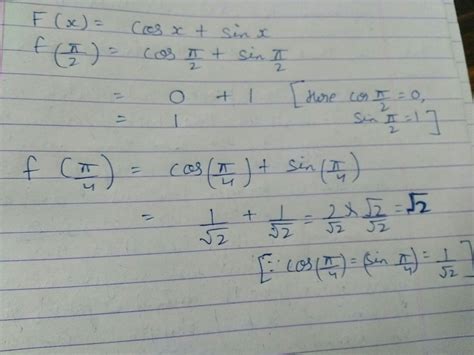 F(x) = cos x + sin x
f(π/2) = cos π/2 + sin π/2
= 0 + 1 [Here cos π/2 = 0,
= 1 sin π/2 = 1]
f (π/4) = cos(π/4) + sin(π/4)
= 1/√2 + 1/√2 = 2/√2 × √2/√2 = √2
[∵ cos(π/4) = (sin π/4) = 1/√2]